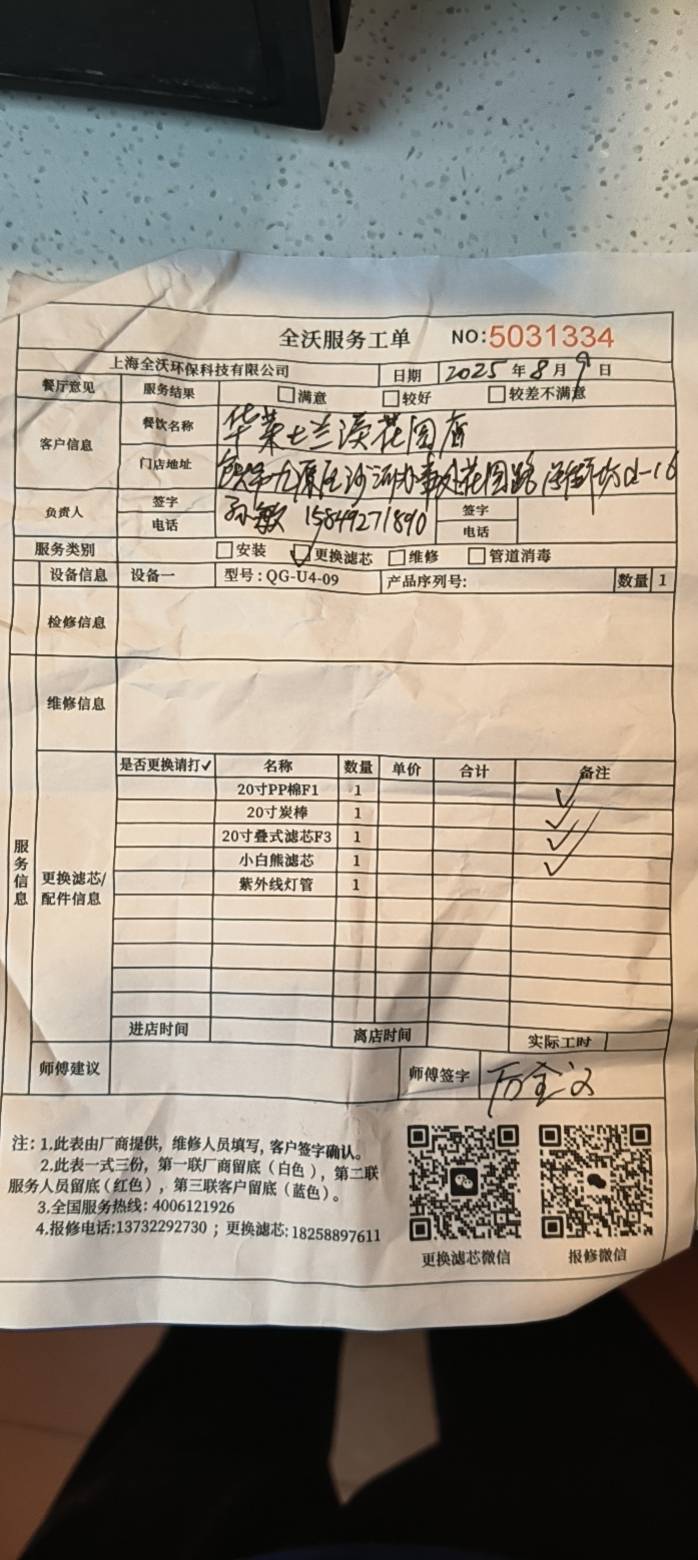 全沃服务工单 NO:5031334
上海全沃环保科技有限公司 日期 2025 年 8 月 9 日
餐厅意见 服务结果 满意 较好 较差不满意
客户信息 餐饮名称 华莱士兰溪花园店
门店地址 九原区沙河办事处花园路
负责人 签字 孙敏 签字
电话 15849271890 电话
服务类别 安装 ✓更换滤芯 维修 管道消毒
服务信息
设备信息 设备一 型号:QG-U4-09 产品序列号: 数量 1
检修信息
维修信息
更换滤芯/配件信息
是否更换请打✓ 名称 数量 单价 合计 备注
20寸PP棉F1 1 ✓
20寸炭棒 1 ✓
20寸叠式滤芯F3 1 ✓
小白熊滤芯 1 ✓
紫外线灯管 1
进店时间 离店时间 实际工时
师傅建议 师傅签字
注: 1.此表由厂商提供, 维修人员填写, 客户签字确认。
2.此表一式三份, 第一联厂商留底(白色), 第二联
服务人员留底(红色), 第三联客户留底(蓝色)。
3.全国服务热线: 4006121926
4.报修电话:13732292730 ; 更换滤芯: 18258897611
更换滤芯微信 报修微信